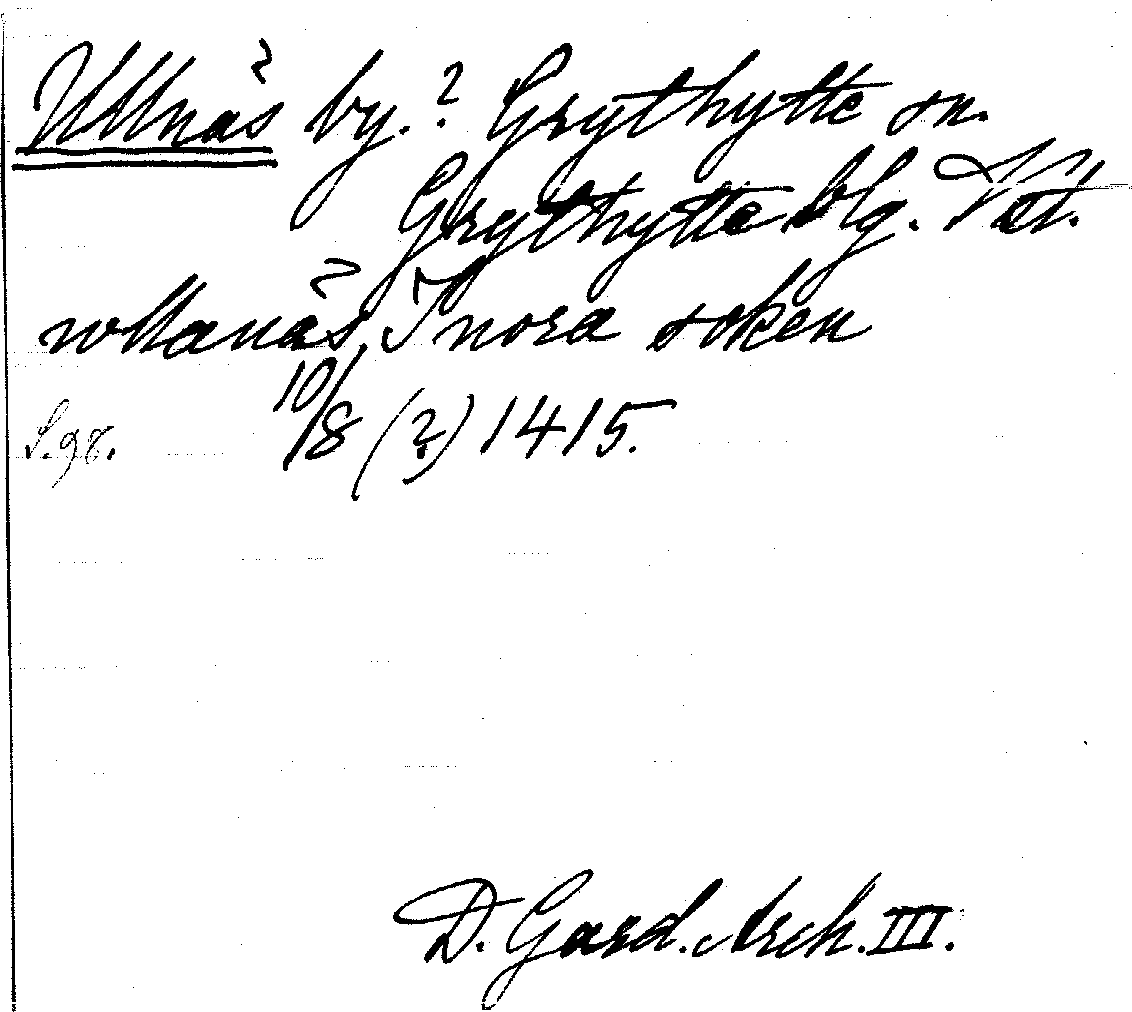 Ullnäs by.? Grythytte sn.
Grythytte blg. Vst.
wllanäs, I nora soken
10/8 (?) 1415.
S. 98.
D. Gard. Arch. III.